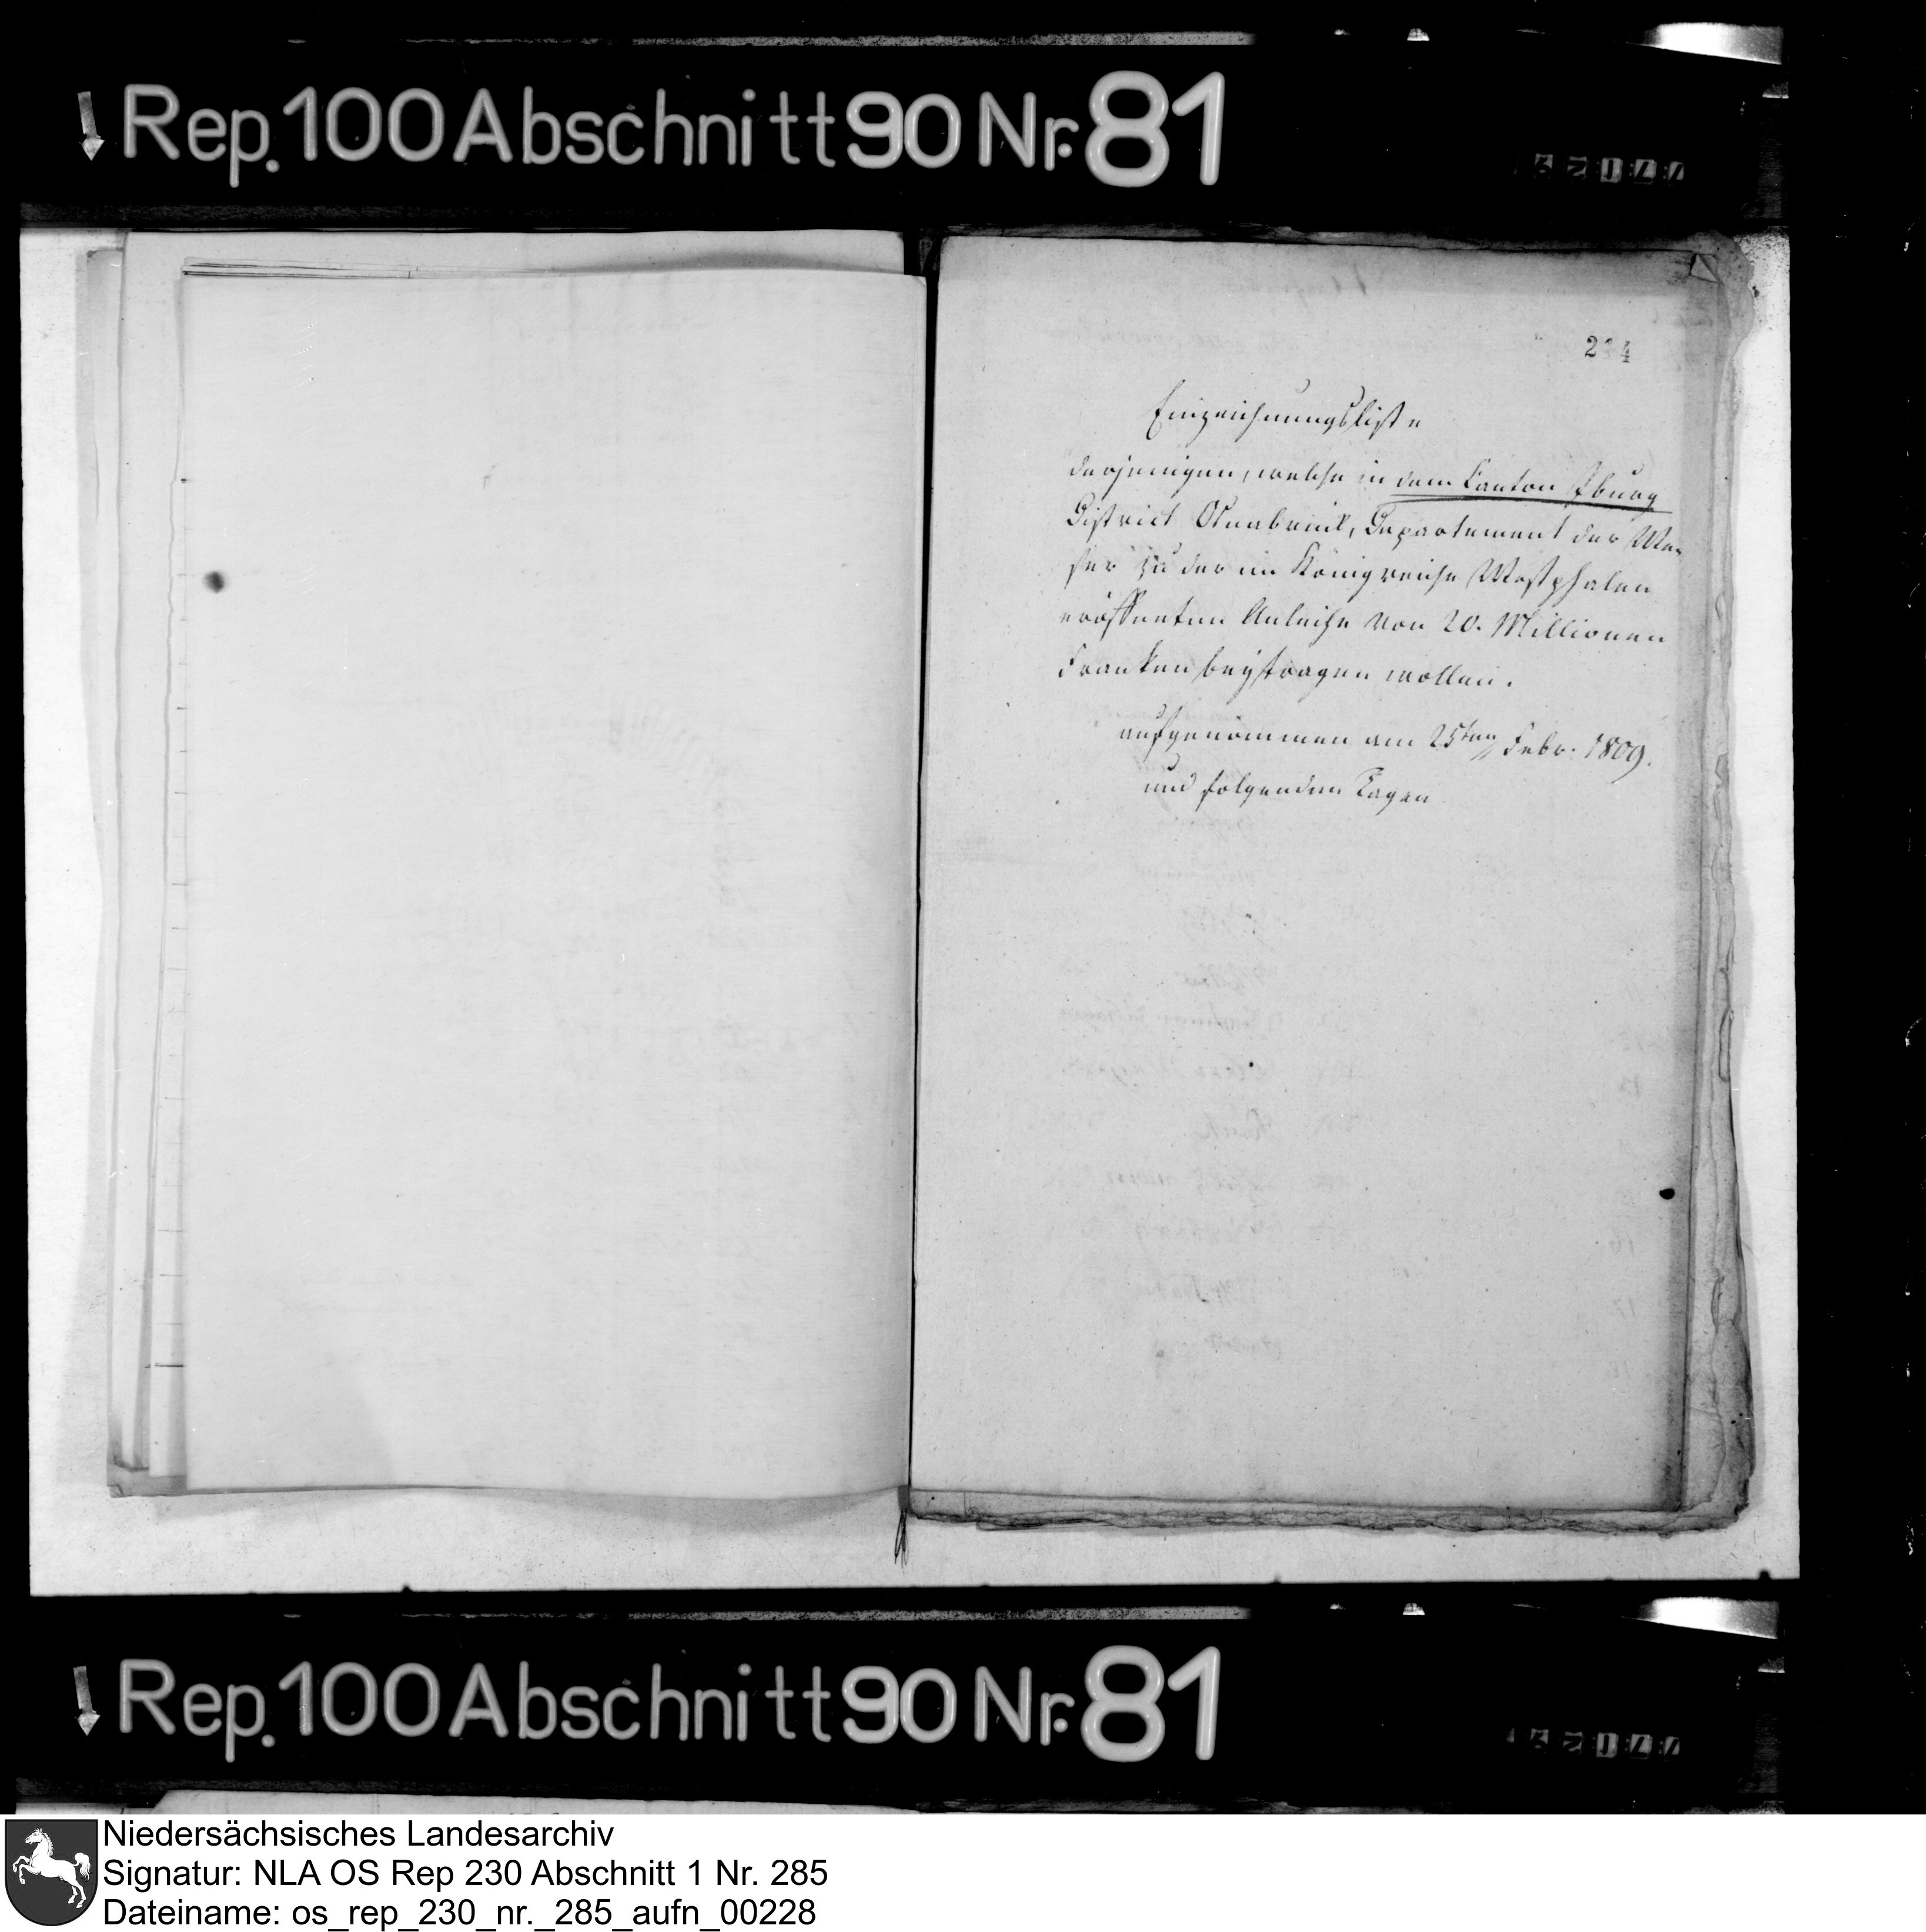 Rep. 100 Abschnitt 90 Nr. 81
Einzeichnungsliste
derjenigen, welche in dem Canton Iburg
District Osnabrück, Departement der We-
ser zu der im Königreiche Westphalen
eröffneten Anleihe von 20. Millionen
Franken beytragen wollen.
aufgenommen am 25ten Febr. 1809.
und folgenden Tagen
Rep. 100 Abschnitt 90 Nr. 81
Niedersächsisches Landesarchiv
Signatur: NLA OS Rep 230 Abschnitt 1 Nr. 285
Dateiname: os_rep_230_nr._285_aufn_00228